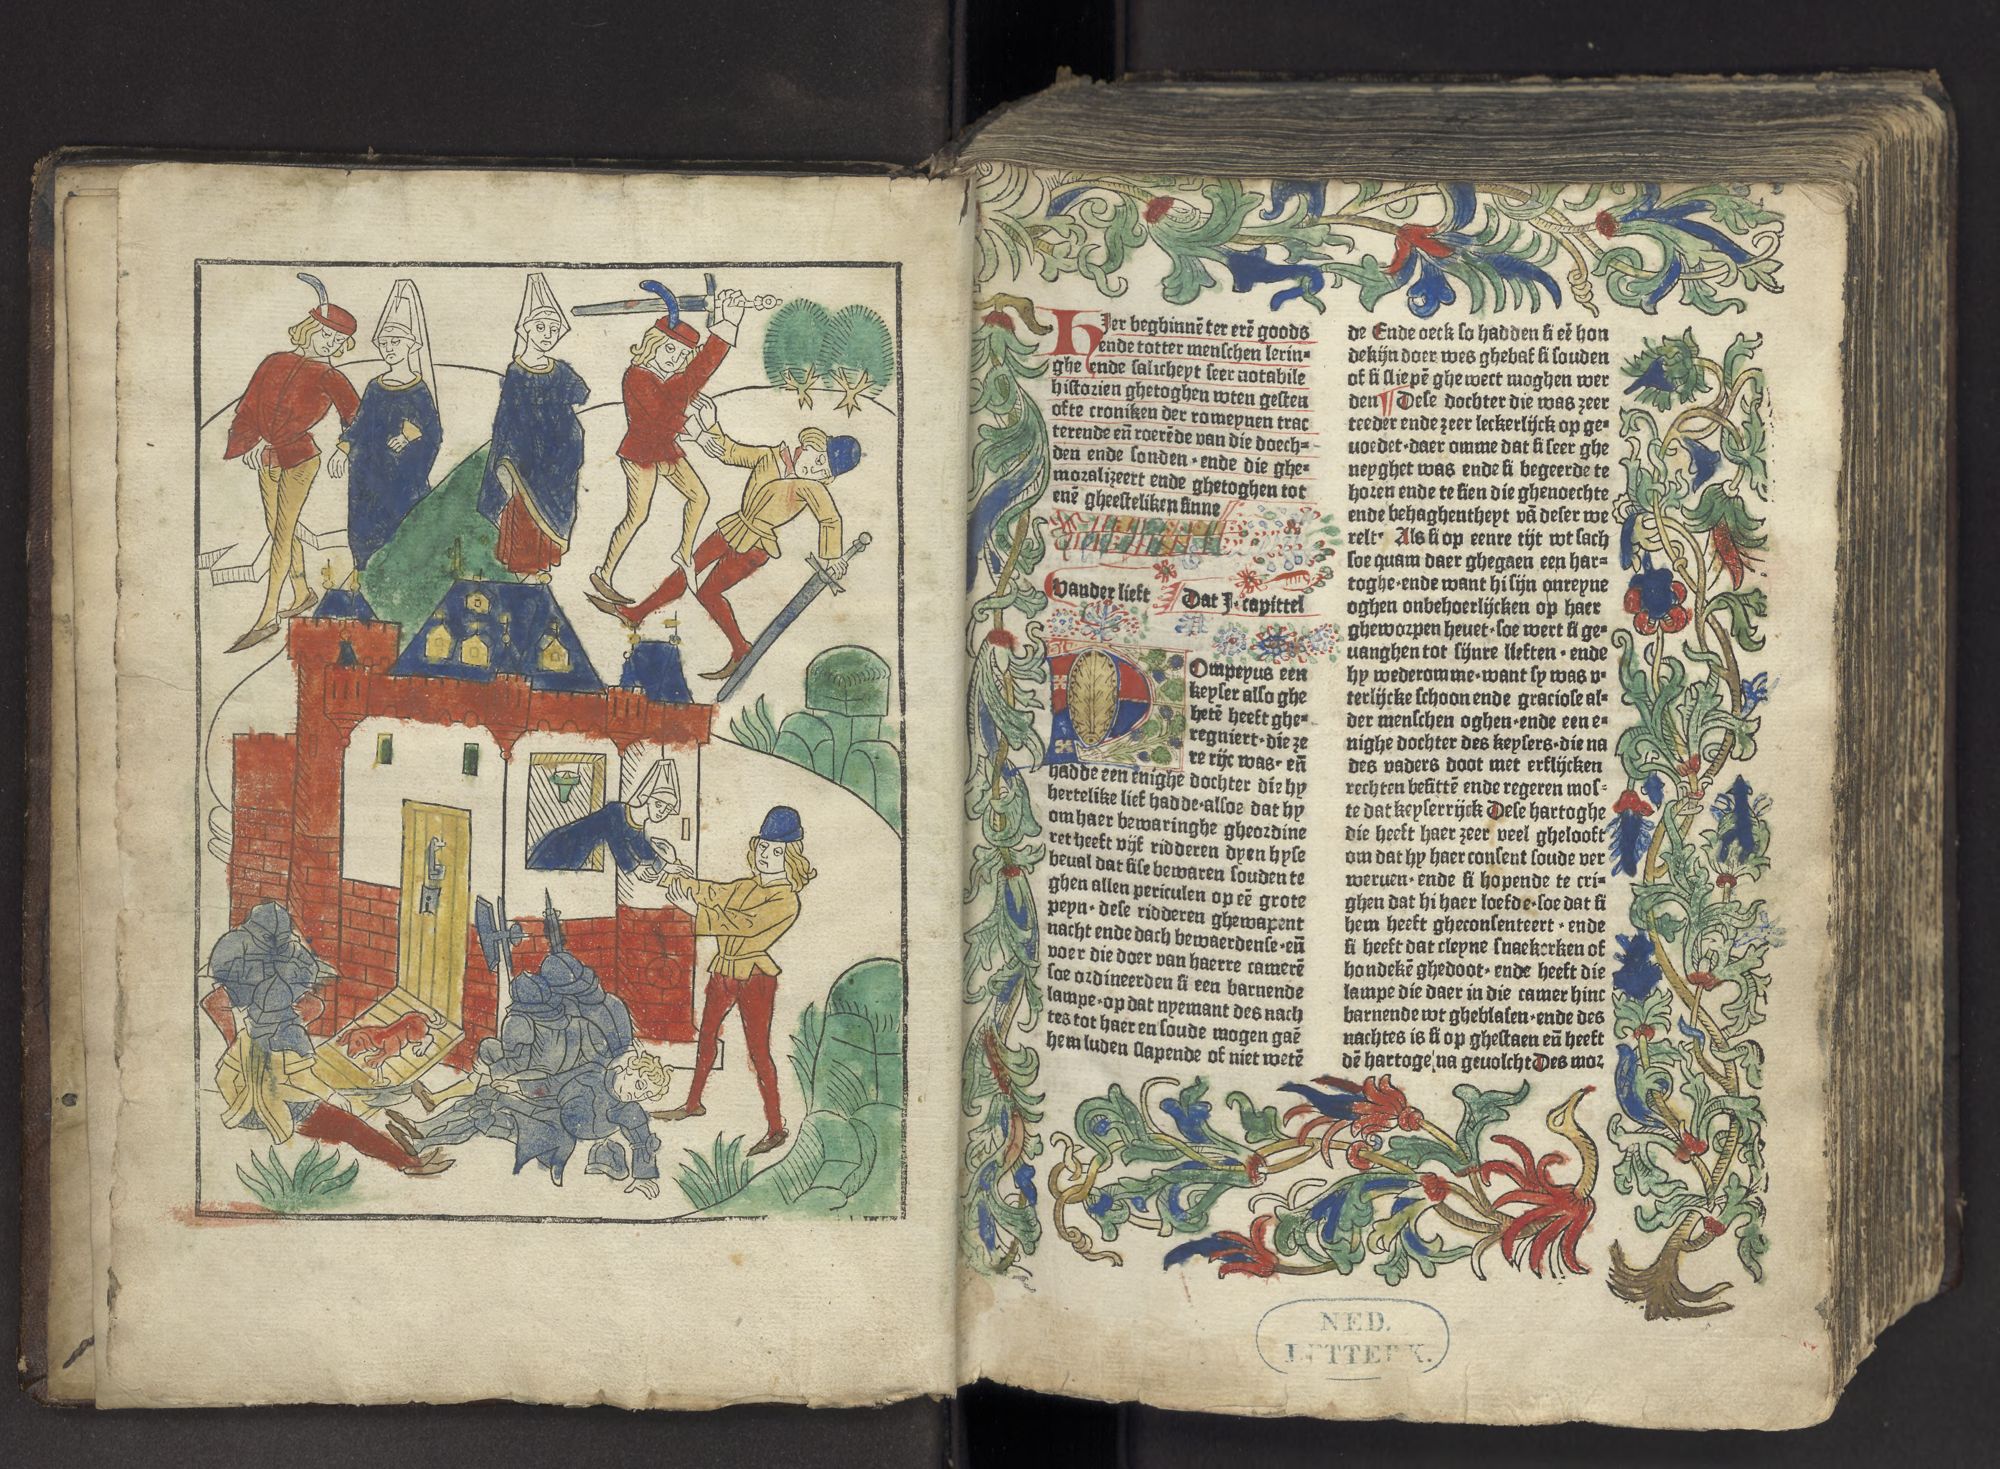 Hier beghinnē ter erē goods
ende totter menschen lerin⸗
ghe ende salicheyt seer notabile
historien ghetoghen wten gesten
ofte croniken der romeynen trac
terende eñ roerēde van die doech⸗
den ende sonden · ende die ghe⸗
moralizeert ende ghetoghen tot
enē gheesteliken sinne
Vander lieft Dat I · capittel
Ompeyus een
keyser also ghe
hetē heeft ghe⸗
regniert · die ze
re rijc was · eñ
hadde een enighe dochter die hy
hertelike lief hadde · alsoe dat hy
om haer bewaringhe gheordine
ret heeft vijf ridderen dyen hyse
beual dat sise bewaren souden te
ghen allen periculen op eē grote
peyn · dese ridderen ghewapent
nacht ende dach bewaerdense · eñ
voer die doer van haerre camerē
soe ordineerden si een barnende
lampe · op dat nyemant des nach
tes tot haer en soude mogen gaē
hem luden slapende of niet wetē
de Ende oeck so hadden si eē hon
dekijn doer wes ghebaf si souden
of si sliepē ghewect moghen wer
den Dese dochter die was zeer
teeder ende zeer leckerlijck op ge⸗
uoedet · daer omme dat si seer ghe
neyghet was ende si begeerde te
horen ende te sien die ghenoechte
ende behaghentheyt vā deser we
relt · Als si op eenre tijt wt sach
soe quam daer ghegaen een har⸗
toghe · ende want hi sijn onreyne
oghen onbehoerlijcken op haer
gheworpen heuet · soe wert si ge⸗
uanghen tot sijnre liesten · ende
hy wederomme · want sy was v⸗
terlijcke schoon ende graciose al⸗
der menschen oghen · ende een e⸗
nighe dochter des keysers · die na
des vaders doot met erflijcken
rechten besittē ende regeren mos⸗
te dat keyserrijck Dese hartoghe
die heeft haer zeer veel ghelooft
om dat hy haer consent soude ver
weruen · ende si hopende te cri⸗
ghen dat hi haer loefde · soe dat si
hem heeft gheconsenteert · ende
si heeft dat cleyne snaekerken of
hondekē ghedoot · ende heeft die
lampe die daer in die camer hinc
barnende wt gheblasen · ende des
nachtes is si op ghestaen eñ heeft
dē hartoge na geuolcht Des mor
NED.
LETTERK.